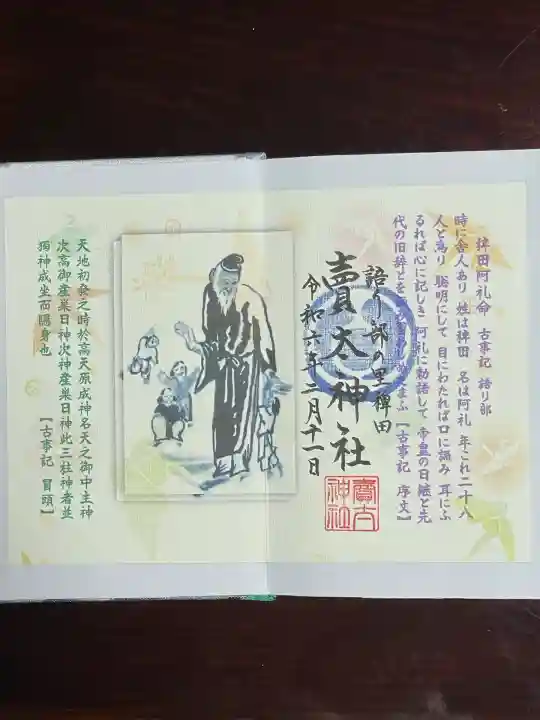 稗田阿礼命 古事記 語り部
時に舎人あり 姓は稗田 名は阿礼 年これ二十八
人と為り 聡明にして 目にわたれば口に誦み 耳にふ
るれば心に記しき 阿礼に勅語して 帝皇の日継と先
代の旧辞とを まふ【古事記 序文】
語り部の里 稗田
賣太神社
令和六年二月十一日
賣太
神社
天地初発之時於高天原成神名天之御中主神
次高御産巣日神次神産巣日神此三社神者並
独神成坐而隠身也
【古事記 冒頭】